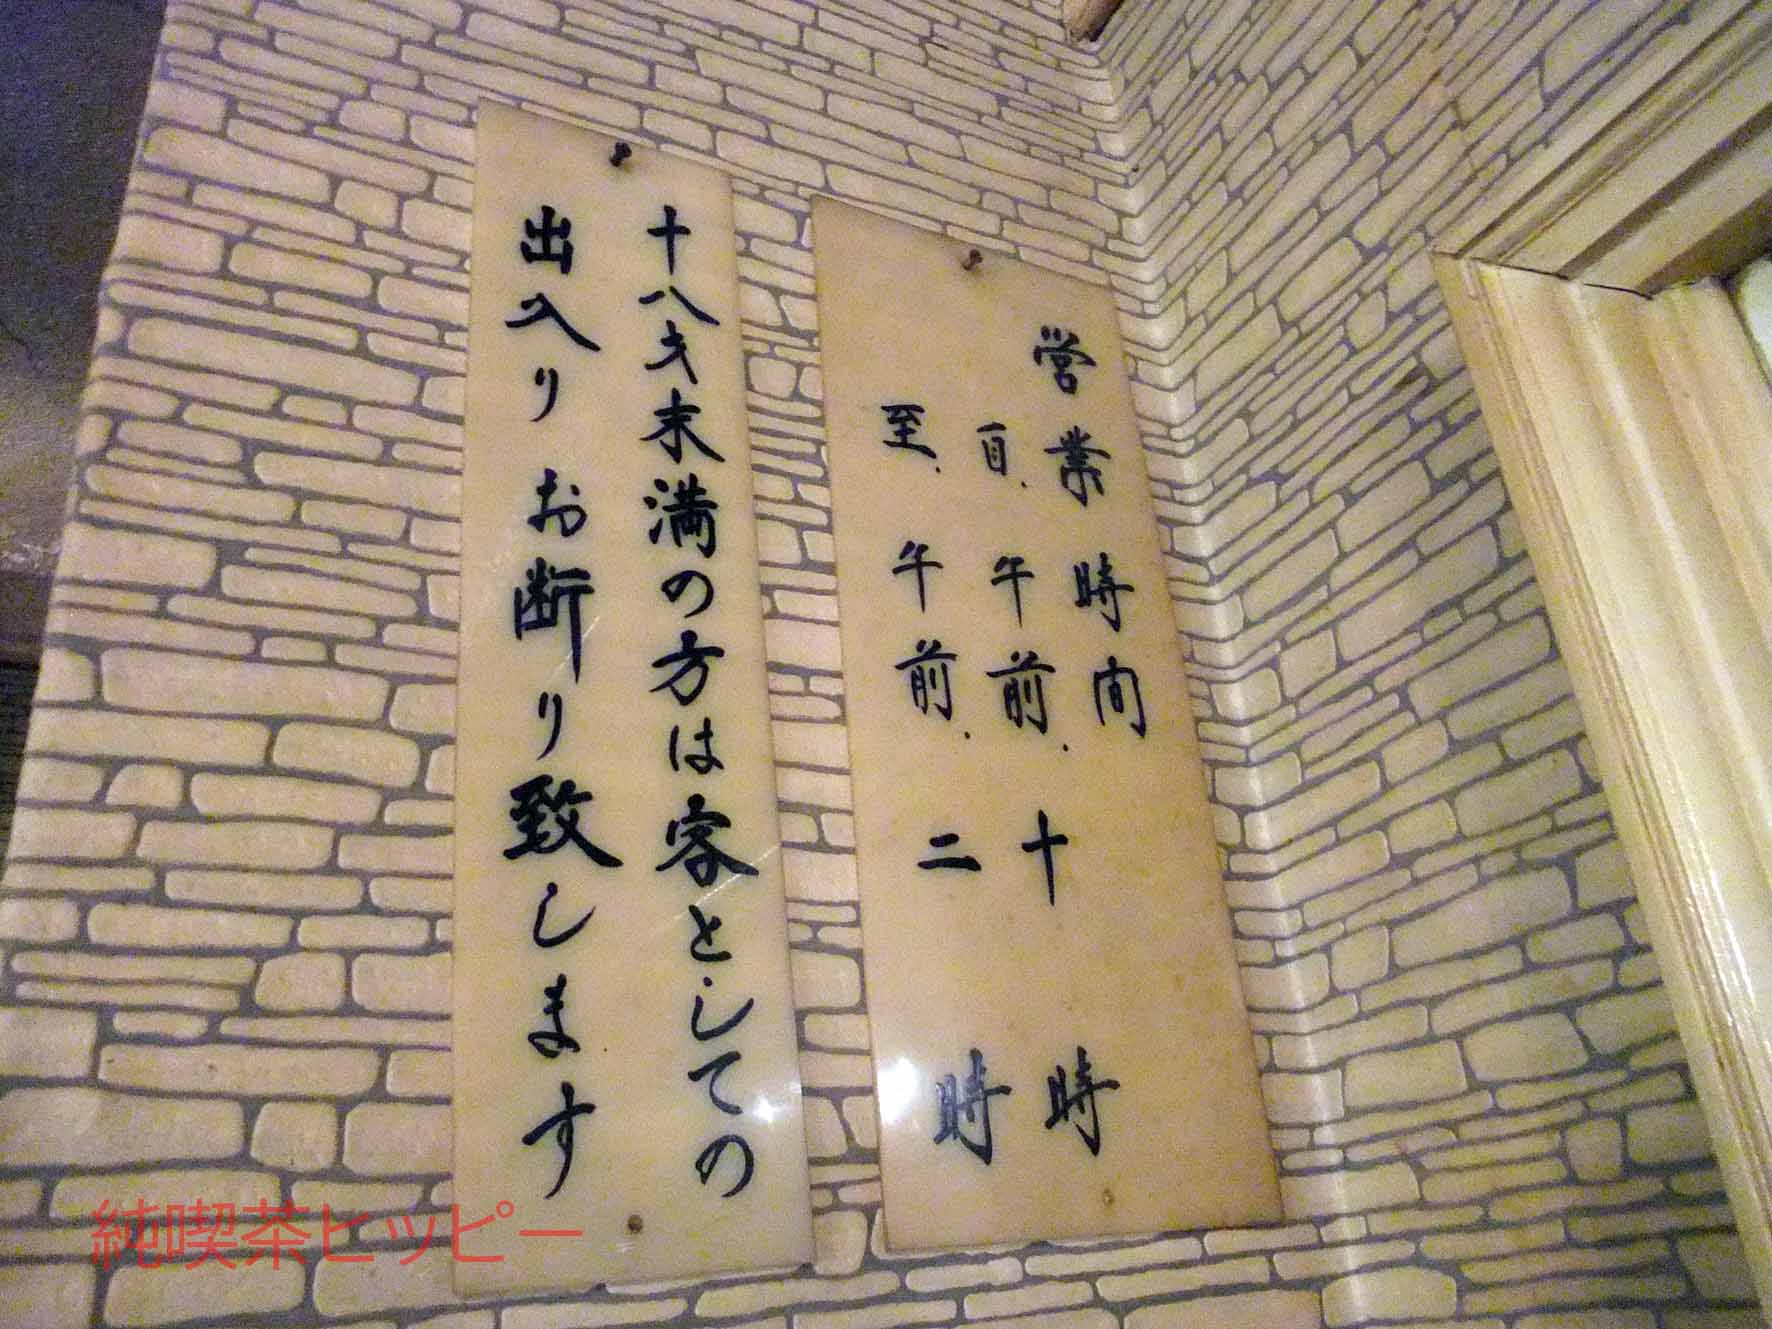 営業時間
自.午前.十時
至.午前.二時
十八才未満の方は客としての
出入りお断り致します
純喫茶ヒッピー